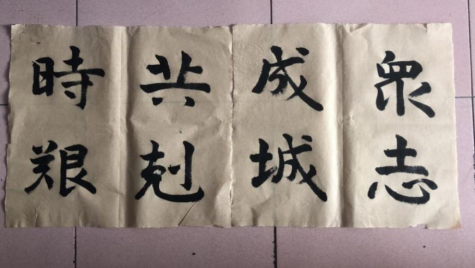 眾志
成城
共剋
時艱